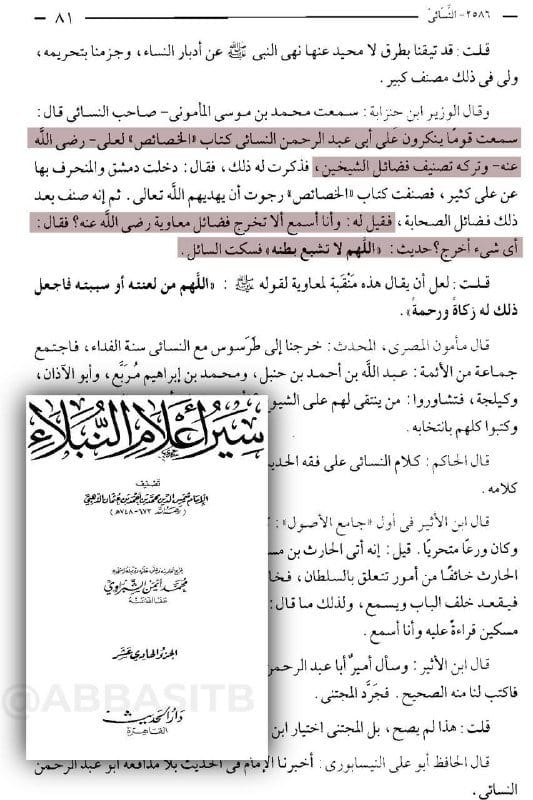 ٢٥٨٦- النَّسائىّ
٨١
قلت : قد تيقنا بطرق لا محيد عنها نهى النبى ﷺ عن أدبار النساء، وجزمنا بتحريمه،
ولى فى ذلك مصنف كبير .
وقال الوزير ابن حنزابة : سمعت محمد بن موسى المأمونى- صاحب النسائى قال :
سمعت قومًا ينكرون عَلَى أبى عبد الرحمن النسائى كتاب «الخصائص» لعلى- رضى اللَّه
عنه- وتركه تصنيف فضائل الشيخين، فذكرت له ذلك، فقال : دخلت دمشق والمنحرف بها
عن على كثير، فصنفت كتاب «الخصائص» رجوت أن يهديهم اللَّه تعالى. ثم إنه صنف بعد
ذلك فضائل الصحابة، فقيل له : وأنا أسمع ألا تخرج فضائل معاوية رضى اللَّه عنه؟ فقال :
أى شىء أخرج؟ حديث : «اللَّهم لا تشبع بطنه» فسكت السائل .
قلت : لعل أن يقال هذه مَنْقَبة لمعاوية لقوله ﷺ : «اللَّهم من لعنته أو سببته فاجعل
ذلك له زكاةً ورحمةً» .
قال مأمون المصرى، المحدث : خرجنا إلى طَرَسوس مع النسائى سنة الفداء، فاجتمع
جماعة من الأئمة : عبد اللَّه بن أحمد بن حنبل، ومحمد بن إبراهيم مُرَبَّع، وأبو الآذان،
وكيلجة، فتشاوروا : من ينتقى لهم على الشيو
وكتبوا كلهم بانتخابه .
قال الحاكم : كلام النسائى على فقه الحد
كلامه .
قال ابن الأثير فى أول «جامع الأصول» :
وكان ورعًا متحريًا . قيل : إنه أتى الحارث بن مس
الحارث خائفًا من أمور تتعلق بالسلطان، فخا
فيقعد خلف الباب ويسمع، ولذلك ما قال :
مسكين قراءةً عليه وأنا أسمع .
قال ابن الأثير : وسأل أميرٌ أبا عبد الرحمن
فاكتب لنا منه الصحيح . فجَرَّد المجتنى .
قلت : هذا لم يصح، بل المجتنى اختيار ابن
قال الحافظ أبو على النيسابورى : أخبرنا الإمام فى الحديث بلا مدافعة أبو عبد الرحمن
النسائى .
سير أعلام النبلاء
تصنيف
الإمام شمس الدين محمد بن أحمد بن عثمان الذهبى
٦٧٣-٧٤٨هـ
محمد أيمن الشبراوي
الجزء الحادى عشر
دار الحديث
القاهرة
@ABBASITB